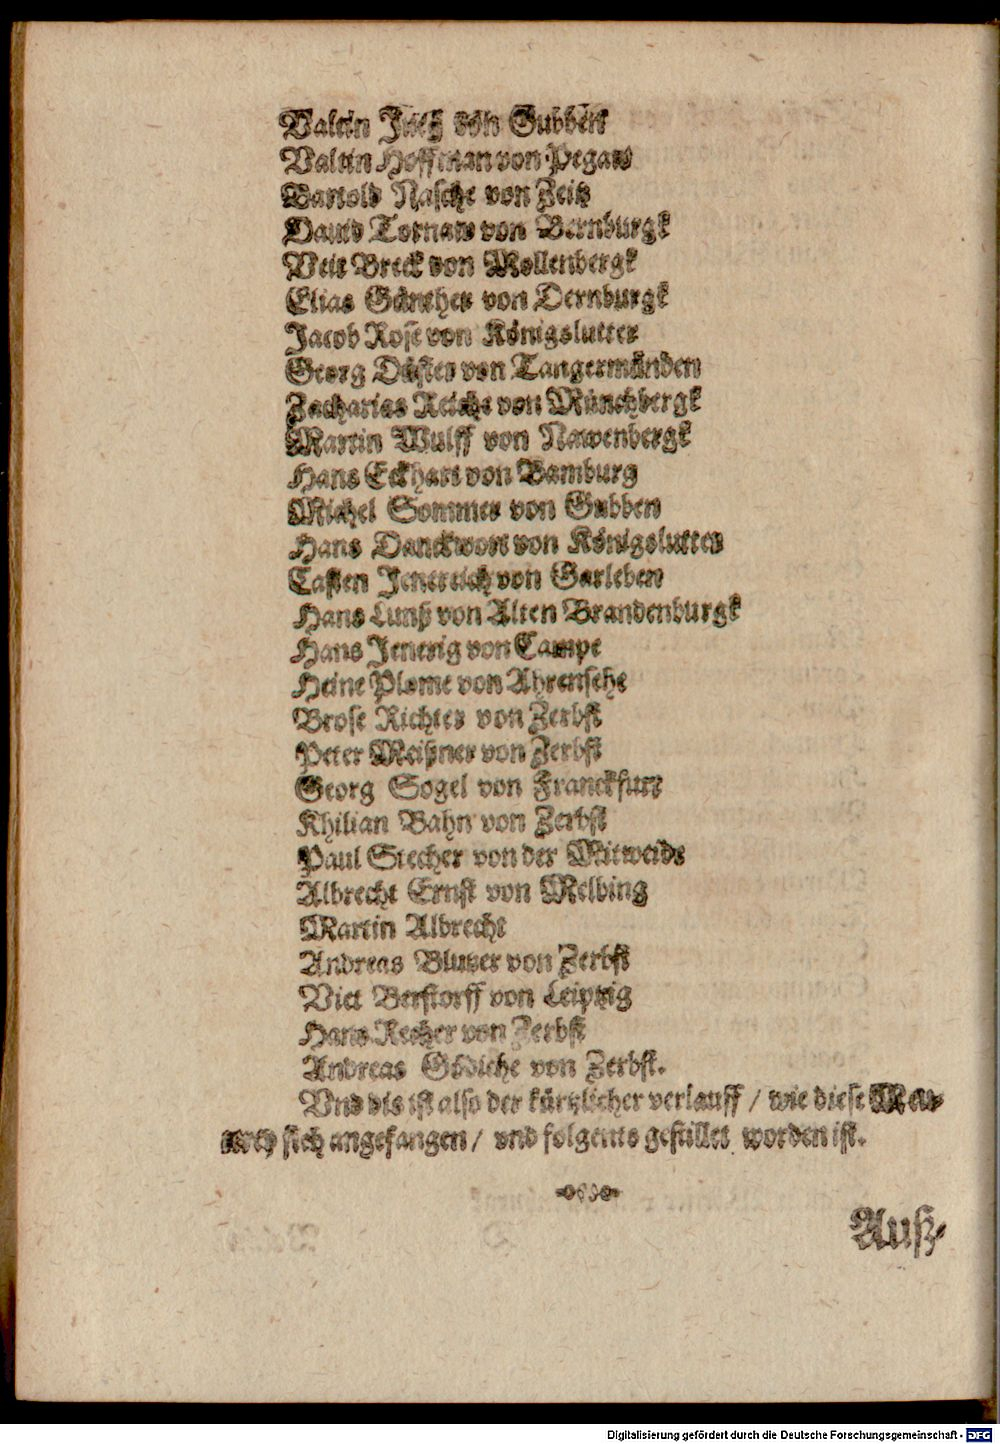 Valtin von Gubben
Valtin Hoffman von Pegaw
Bartold Nasche von Zeitz
Dauid Tornaw von Bernburgk
Veit Breck von Mollenbergk
Elias Günther von Dernburgk
Jacob Rose von Königslutter
Georg Düster von Tangermünden
Zacharias Reiche von Münchbergk
Martin Wulff von Nawenbergk
Hans Eckhart von Bamburg
Michel Sommer von Gubben
Hans Danckwort von Königslutter
Casten Jenereich von Garleben
Hans Luntz von Alten Brandenburgk
Hans Jenerig von Campe
Heine Plome von Ahrensehe
Brose Richter von Zerbst
Peter Meißner von Zerbst
Georg Sogel von Franckfurt
Khilian Bahn von Zerbst
Paul Stecher von der Mitweide
Albrecht Ernst von Melbing
Martin Albrecht
Andreas Blutzer von Zerbst
Viet Berstorff von Leiptzig
Hans Recher von Zerbst
Andreas Gödiche von Zerbst.
Vnd dis ist also der kürtzlicher verlauff / wie diese Meu-
terey sich angefangen / vnd folgents gestillet worden ist.
Auß-
Digitalisierung gefördert durch die Deutsche Forschungsgemeinschaft - DFG